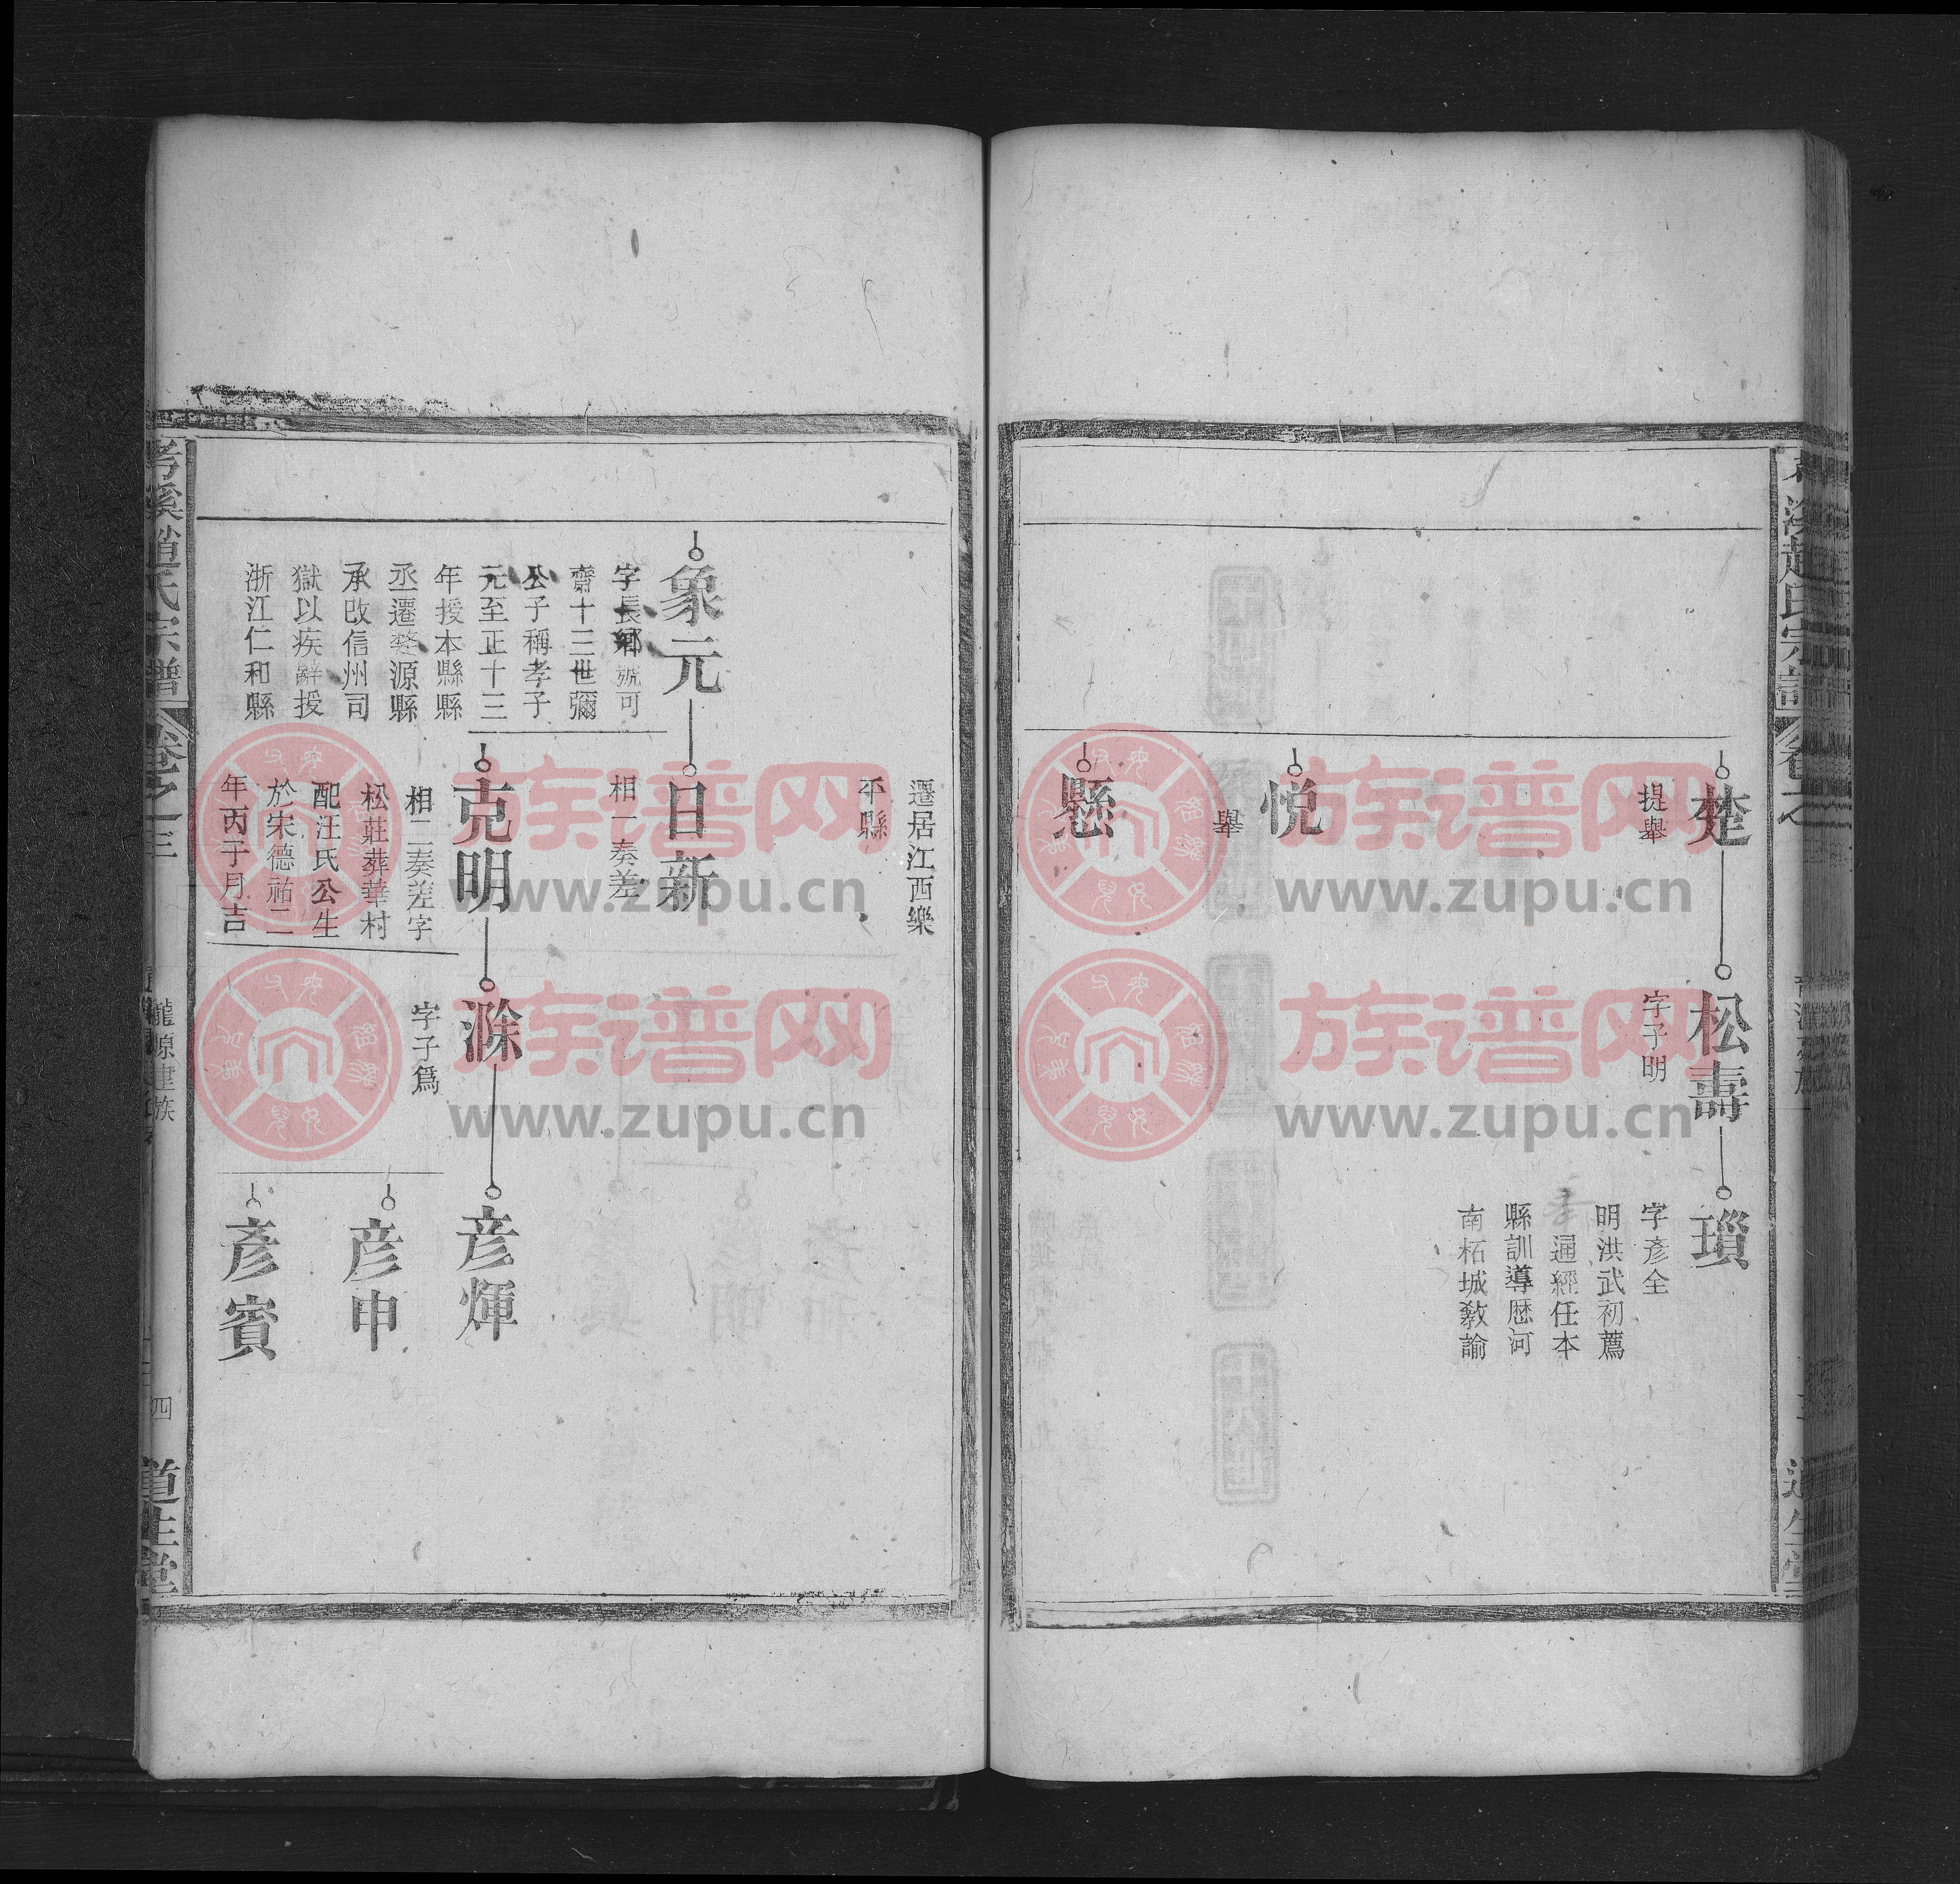 楚
提舉
松壽
字子明
瑣
字彥全
明洪武初薦
通經任本
縣訓導歷河
南柘城敎諭
悅
舉
懸
遷居江西樂
平縣
象元
字長鄉號可
齋十三世彌
公子稱孝子
元至正十三
年授本縣縣
丞遷婺源縣
承改信州司
獄以疾辭授
浙江仁和縣
日新
相一奏差
克明
相二奏差字
松莊葬華村
配汪氏公生
於宋德祐二
年丙子月吉
滁
字子爲
彥煇
彥申
彥賓
考溪趙氏宗譜
卷之三
龍源建族
四
道生堂
族谱网
www.zupu.cn
族谱网
www.zupu.cn
族谱网
www.zupu.cn
族谱网
www.zupu.cn